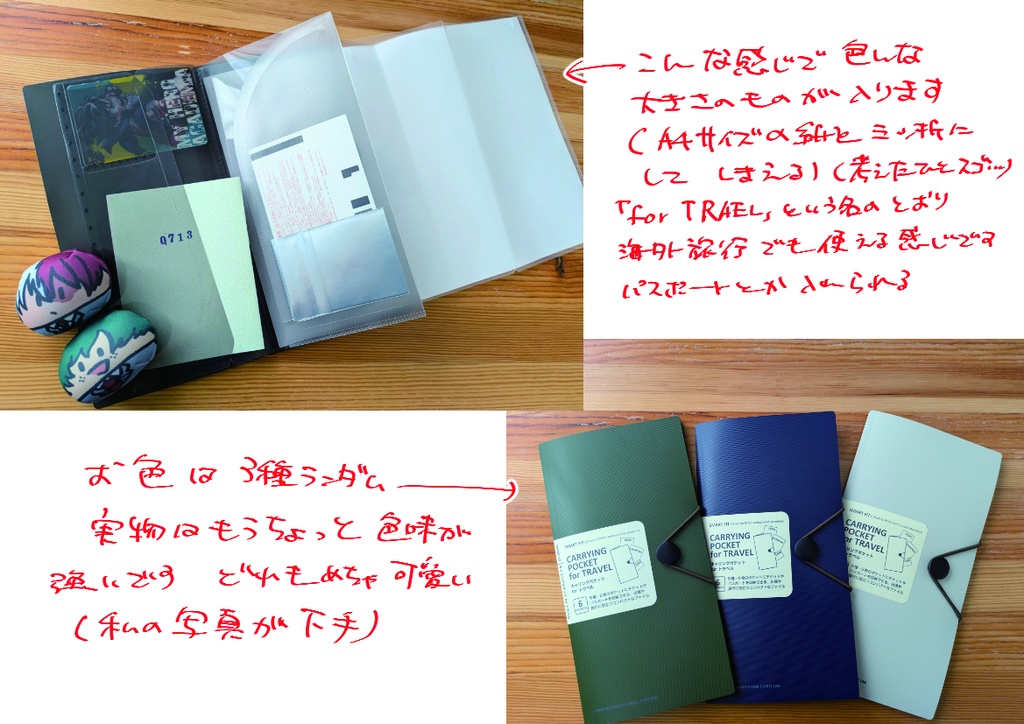 MY HERO
ACADEMIA
Q713
こんな感じで 色んな
大きさのものが入ります
(A4サイズの紙を三ツ折に
して しまえる)(考えたひとスゴッ…)
「for TRAEL」という名のとおり
海外旅行でも使える感じです
パスポートとか入れられる
お色は3種ランダム
実物はもうちょっと色味が
強いです どれもめちゃ可愛い
(私の写真が下手)
CARRYING
POCKET
for TRAVEL
キャリングポケット
for トラベル
6
CARRYING
POCKET
for TRAVEL
キャリングポケット
for トラベル
6
CARRYING
POCKET
for TRAVEL
キャリングポケット
for トラベル